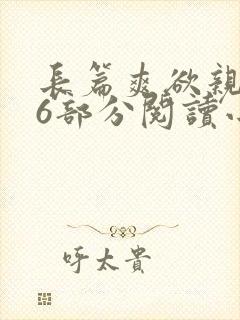 長篇爽欲親
6部分閱讀
呼太貴